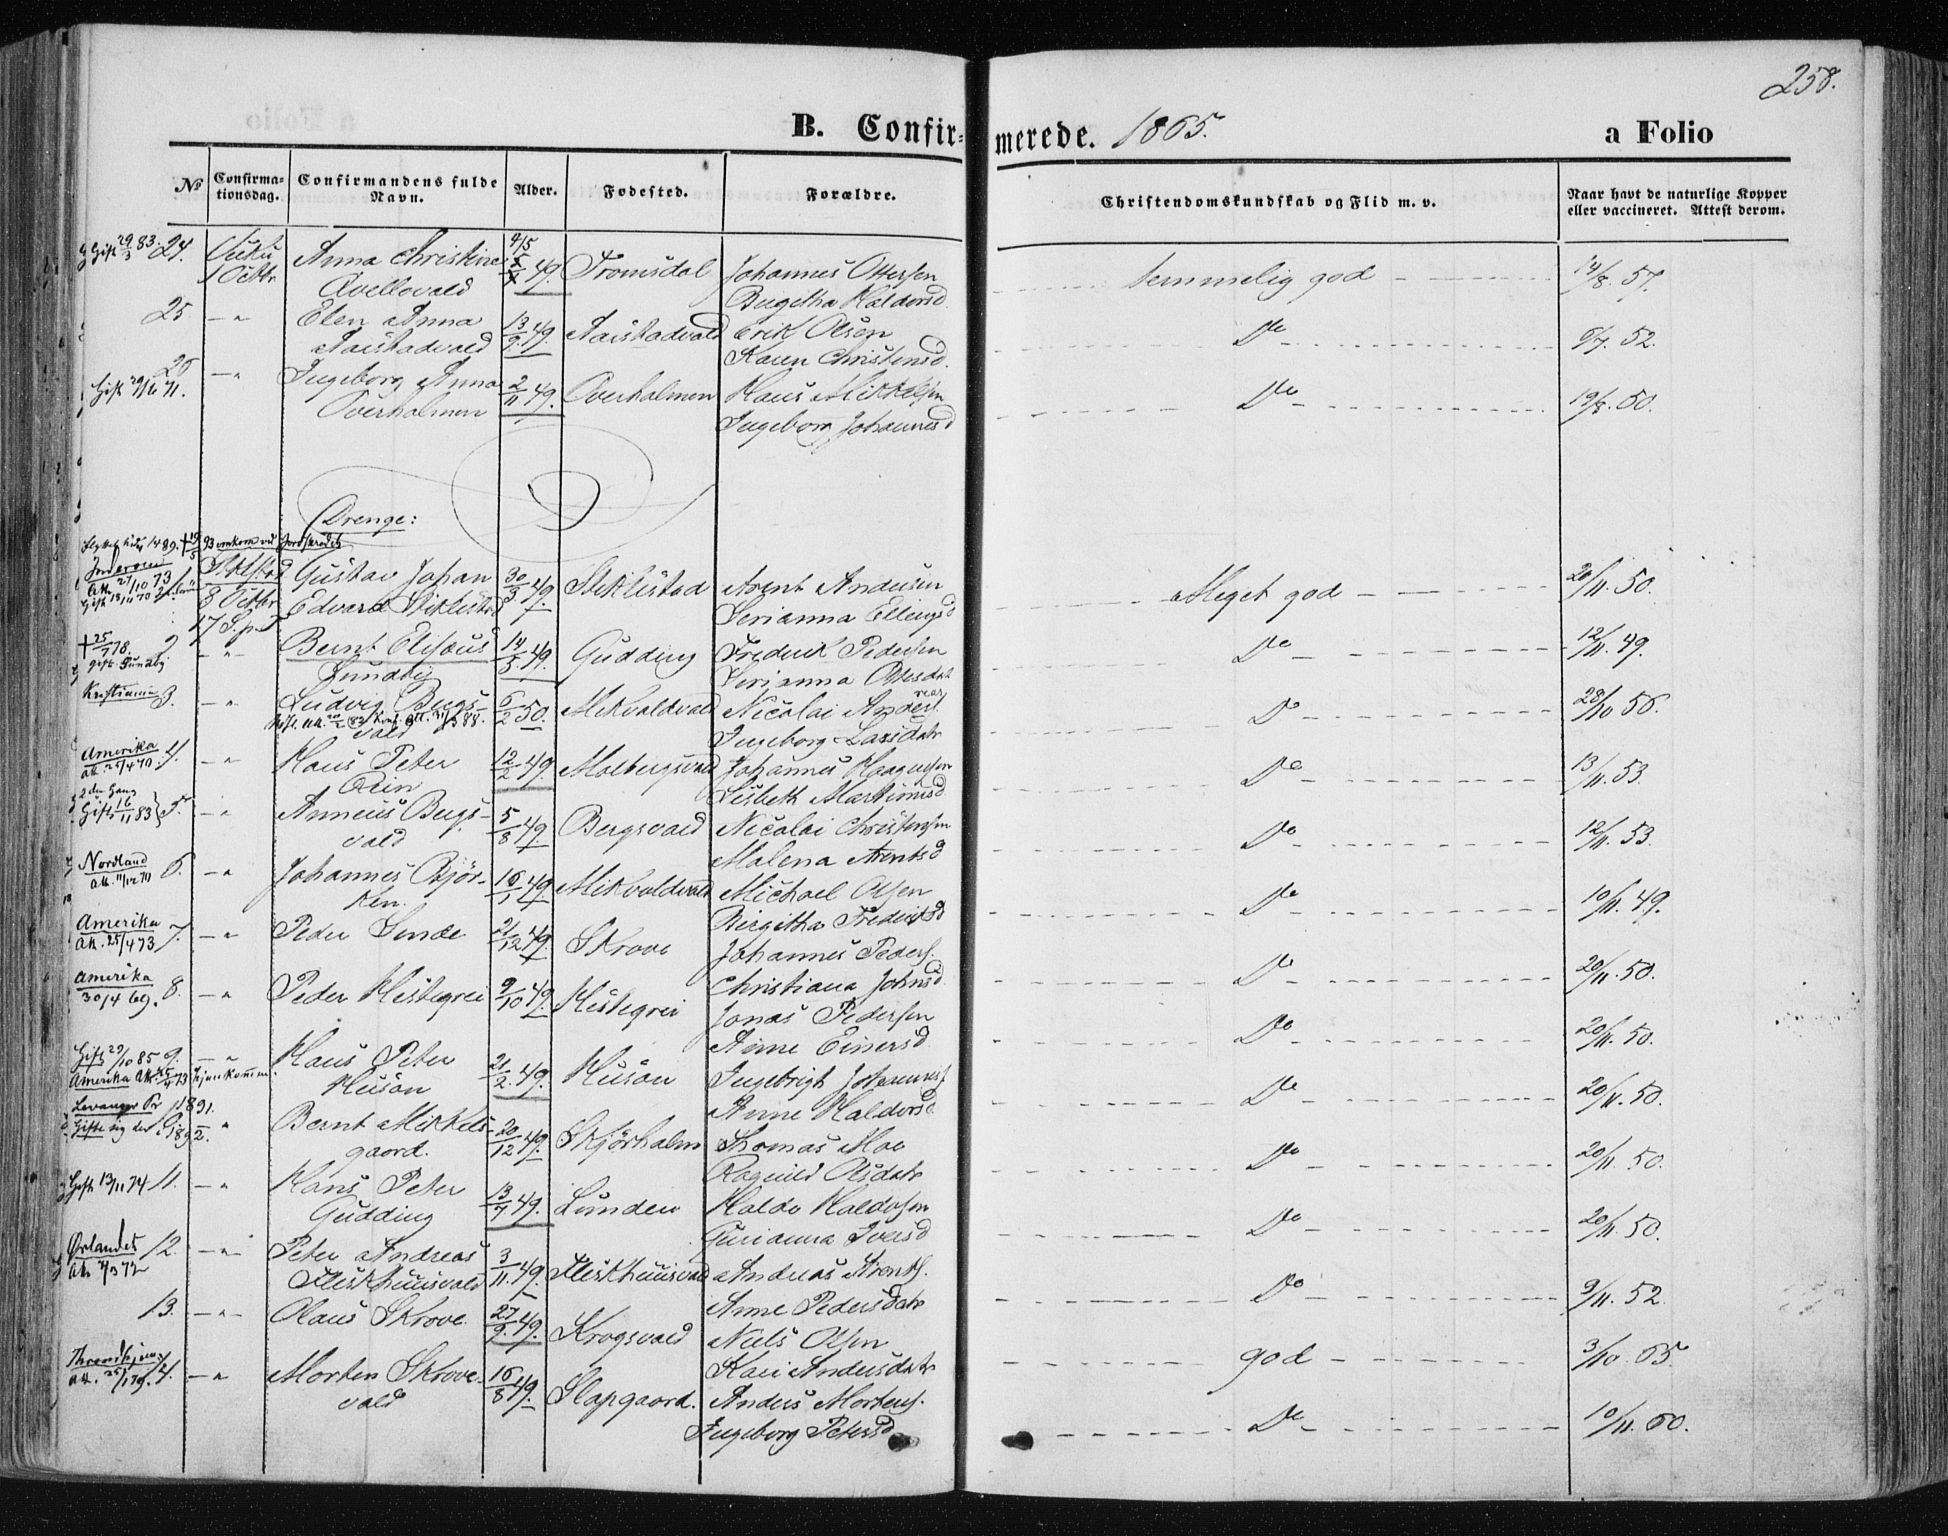 258.
B. Confir-merede. 1865. a Folio
No Confirma-tionsdag. Confirmandens fulde Navn. Alder. Fødested. Forældre. Christendomskundskab og Flid m. v. Naar havt de naturlige Kopper eller vaccineret. Attest derom.
Gift 29/3 83. 24. 1 Octbr Anna Christine 4/5 49. Tromsdal Johannes Ottersen temmelig god 14/8. 57.
Qvellovald Birgitha Haldorsd
25 — " Elen Anna 13/9 49. Aaistadvald Erik Olsen Do 6/7. 52.
Aaistadvald Karen Christensd.
26 — " Ingeborg Anna 2/11 49. Overholmen Hans Mikkelsen Do 19/8. 50.
Gift 29/6 71.
Overholmen Ingeborg Johannesd
Drenge:
93 omkom ved Jordskredet
Inderøen Att. 27/10 73
Gift 13/11 70
1. 8 Octbr Gustav Johan 30/3 49. Stiklestad Arent Andersen Meget god 20/11. 50.
Edvard Stiklest. Serianna Ellingsd
17 S. p. T
† 25/7 78. 2 — " Bernt Elisæus 14/5 49. Gudding Frederik Pedersen Do 12/11. 49.
gift Sundby
Sundby Serianna Olsdat
Kristiania 3. — " Ludvig Bergs- 6/2 50. Mikvoldvald Nicolai Andreas. Do 28/10 56.
vald Ingeborg Larsdatr
Amerika att. 25/4 70 4. — " Hans Peter 12/2 49. Molbergsvald Johannes Haagensen Do 13/11. 53
Qvin Lisbeth Martinusd
2den Gang
Gift 16/11 83 5. — " Anneus Bergs- 5/8 49. Bergsvald Nicolai Christensen Do 12/11. 53.
vald Malena Arentsd
Nordland att. 11/12 71 6. — " Johannes Bjør- 16/1 49. Mikvoldvald Michael Olsen Do 10/11. 49.
ken. Birgitha Frederiksd
Amerika att. 25/4 73 7. — " Peder Sende 21/12 49. Skrove Johannes Peders. Do 20/11. 50.
Christiana Johnsd
Amerika 30/4 69. 8. — " Peder Hestegrei 9/10 49. Hestegrei Jonas Pedersen Do 20/11. 50.
Anne Einersd.
Gift 29/10 85 9. — " Hans Peter 21/2. 49. Husan Ingebrigt Johannes. Do 20/11. 50.
Amerika Att. 25/4 73 hjemkommen.
Husan Anne Haldorsd.
Levanger Pr 1891.
Gifte sig der 1892. — " Bernt Mikkels- 20/12 49. Skjørholm Thomas Moe Do 20/11. 50.
gaard. Ragnild Olsdatr
Gift 13/11 74 11. — " Hans Peter 13/7 49. Lunden Haldo Haldosen Do 20/11. 50.
Gudding Gurianna Iversd
Ørlandet att. 7/3 72 12. — " Peter Andreas 3/11. 49. Fleskhuusvald Andreas Arents. Do 9/11. 52.
Fleskhuusvald Anne Pedersdatr
13. — " Olaus Skrove 27/9. 49. Krogsvald Niels Olsen god 3/10. 65.
Kari Andersdatr
Throndhjem att. 25/1 79. 14. — " Morten Skrove- 16/8 49. Slapgaard. Anders Mortens. Do 10/11. 60.
vald Ingeborg Petersd